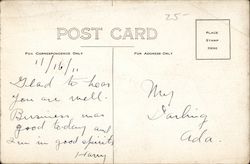 25-
POST CARD
PLACE
STAMP
HERE
FOR CORRESPONDENCE ONLY
FOR ADDRESS ONLY
11/16/11
Glad to hear
you are well.
Business was
good today and
I'm in good spirits
Harry
My
Darling
Ada.